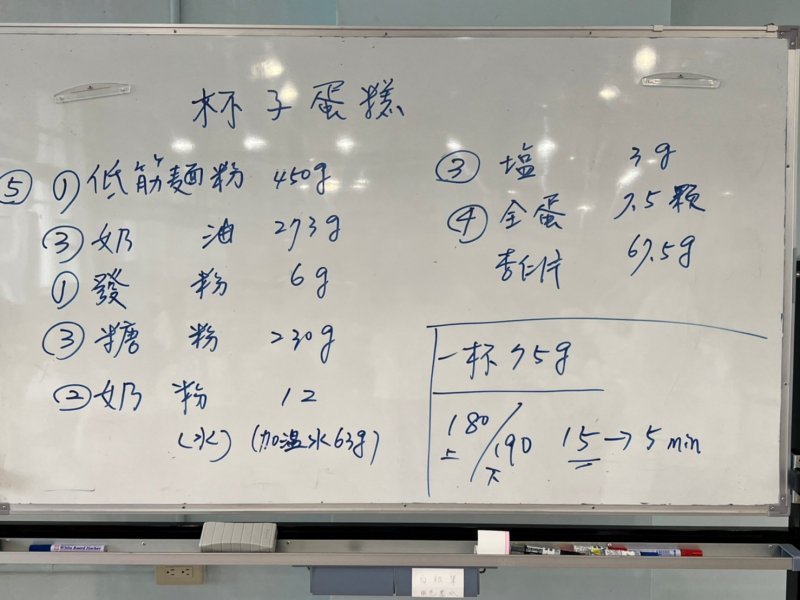 杯子蛋糕
⑤ ① 低筋麵粉 450g
③ 奶油 273g
① 發粉 6g
③ 糖粉 230g
② 奶粉 12
(水) (加溫水63g)
③ 塩 3g
④ 全蛋 7.5顆
杏仁片 67.5g
一杯 75g
180上/190下 15→5min
White Board Marker